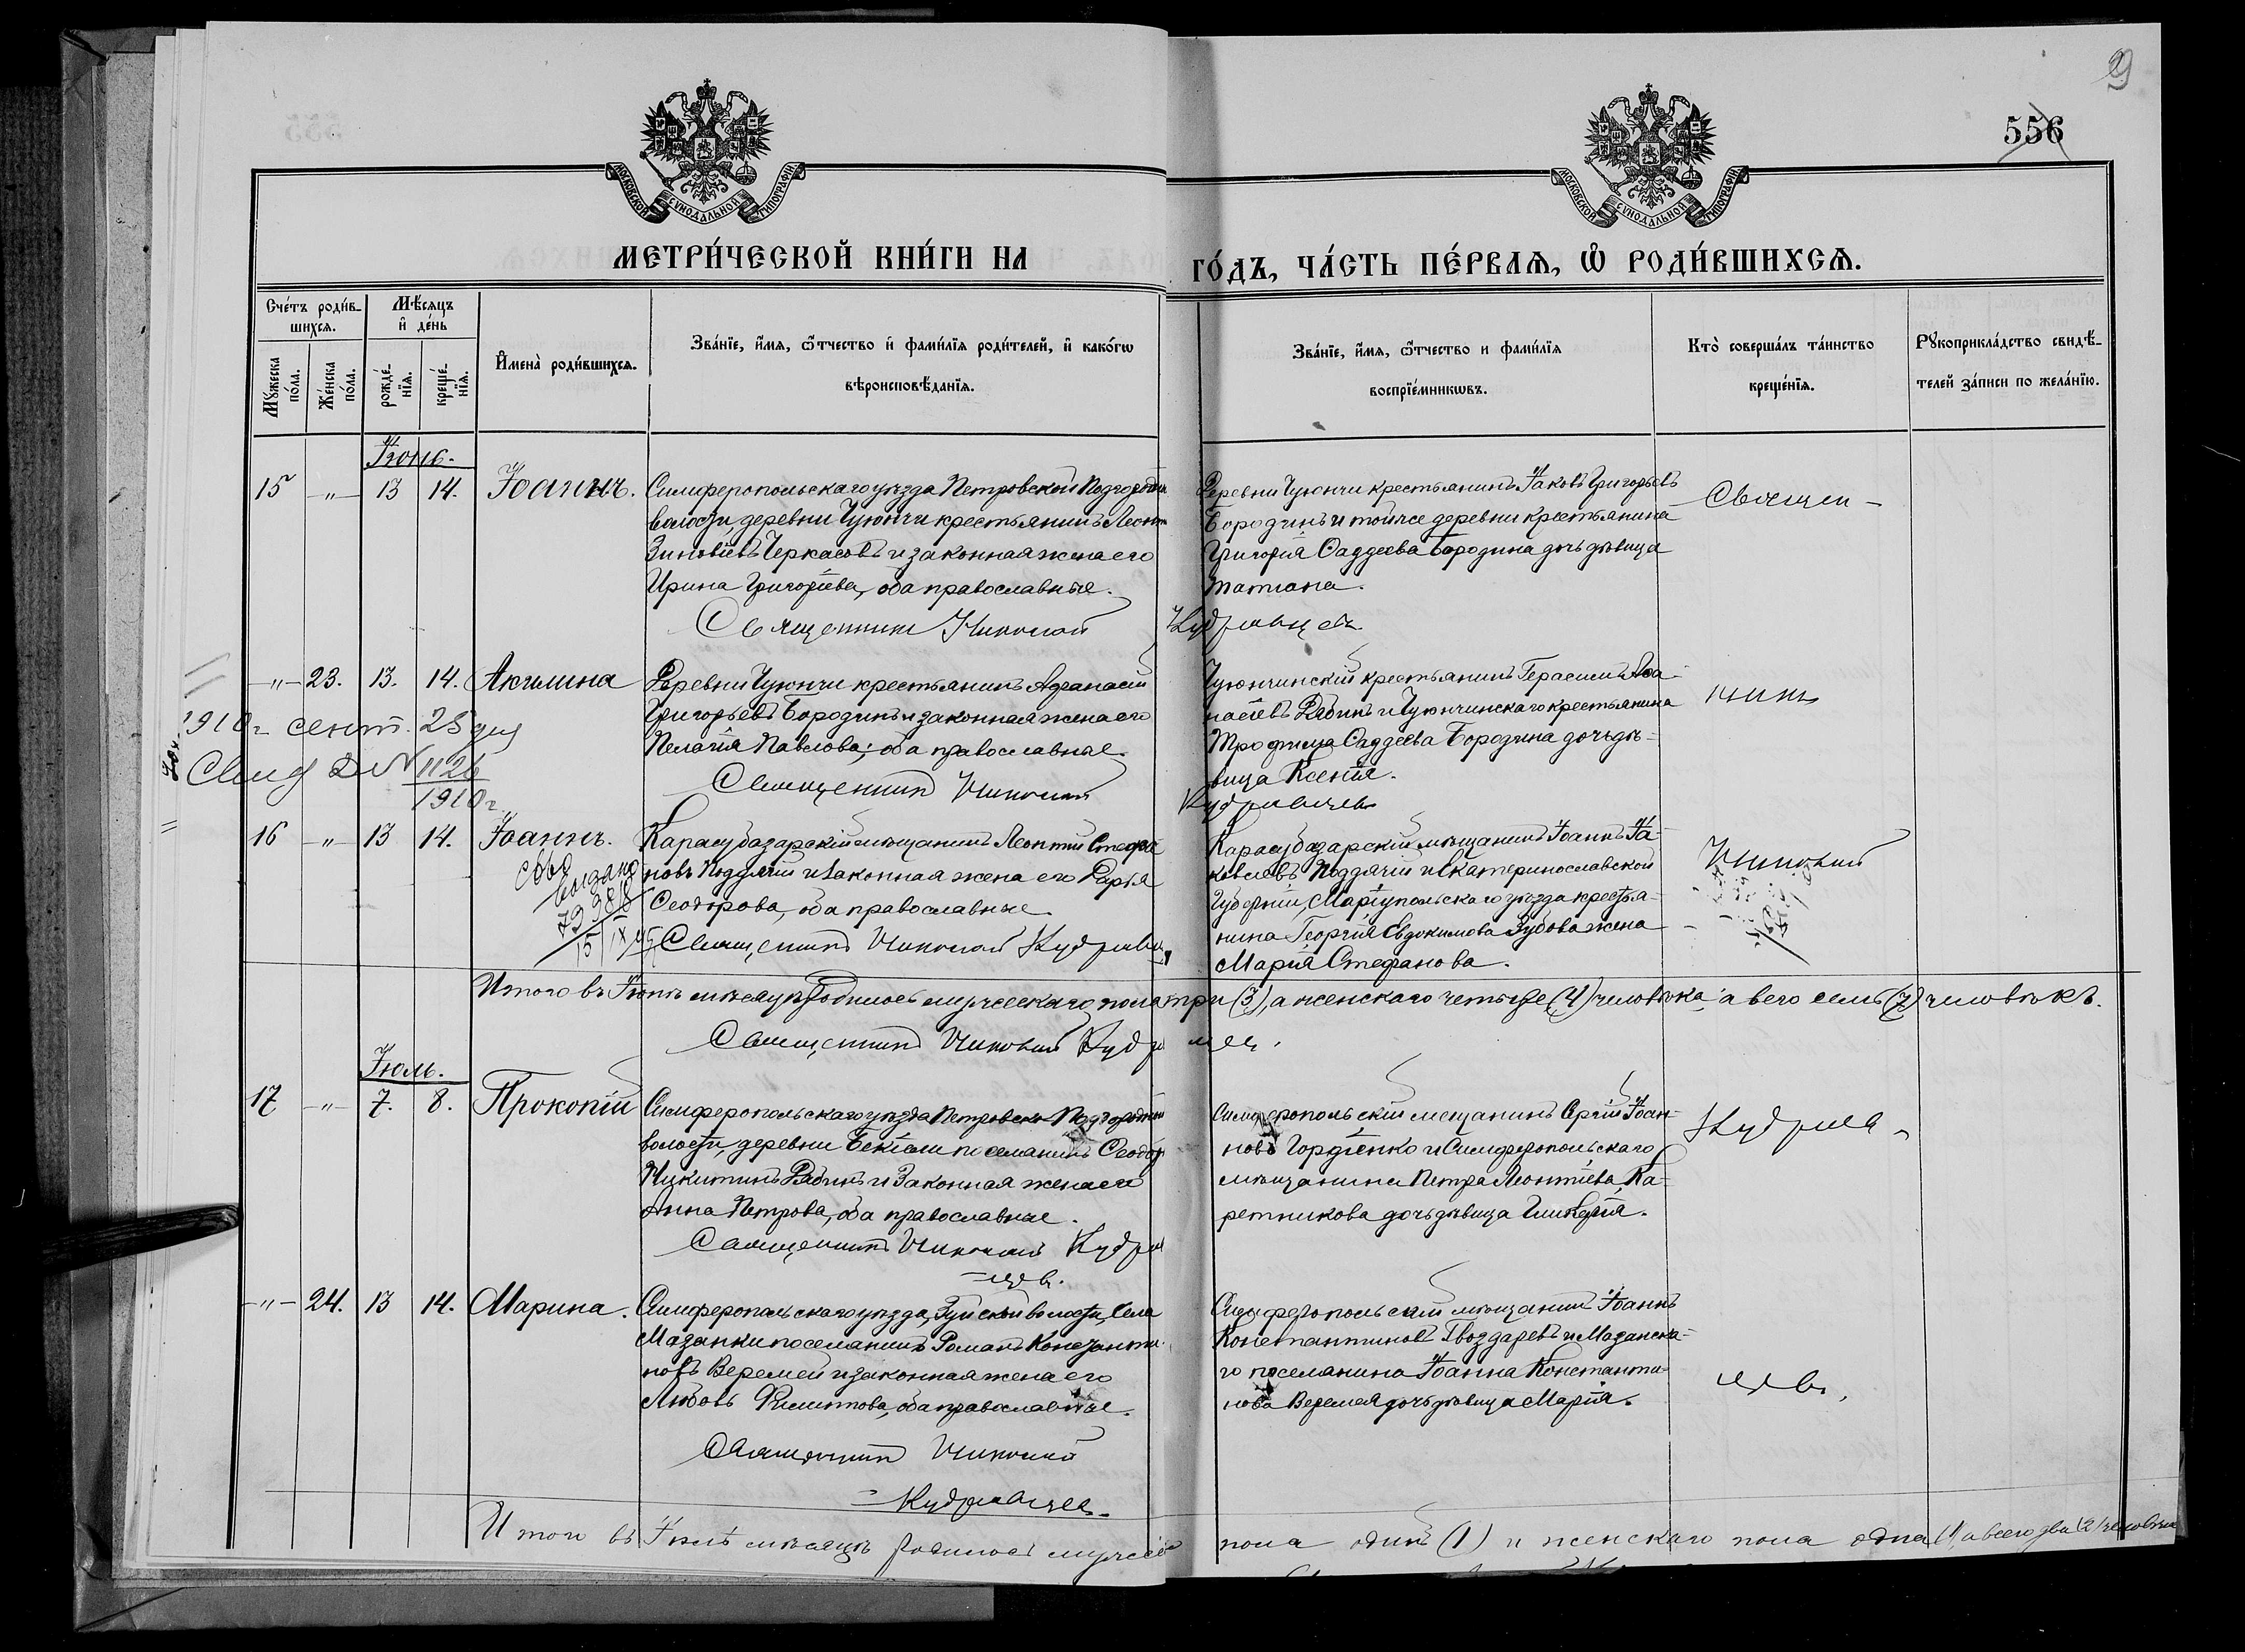 9
556
МОСКОВСКОЙ СѴНОДАЛЬНОЙ ТИПОГРАФІИ
МОСКОВСКОЙ СѴНОДАЛЬНОЙ ТИПОГРАФІИ
МЕТРИ́ЧЕСКОЙ КНИ́ГИ НА ГО́ДЪ, ЧА́СТЬ ПЕ́РВАѦ, Ѽ РОДИ́ВШИХСѦ.
Сче́тъ роди́в-
шихсѧ.
Мꙋжеска
по́ла.
Же́нска
по́ла.
Мѣ́сѧцъ
и҆ де́нь
рожде́-
нїѧ.
креще́-
нїѧ.
И҆мена̀ роди́вшихсѧ.
Зва́нїе, и҆́мѧ, ѻ҆́тчество и҆ фами́лїѧ роди́телей, и҆ како́гѡ
вѣроисповѣ́данїѧ.
Зва́нїе, и҆́мѧ, ѻ҆́тчество и фами́лїѧ
воспрїе́мникѡвъ.
Кто̀ соверша́лъ та́инство
креще́нїѧ.
Рꙋкоприкла́дство свидѣ́-
телей за́писи по жела́нїю.
Іюнь.
15 -"- 13 14. Іоаннъ.
Симферопольскаго уѣзда Петровской Подгородн
волости, деревни Чуюнчи крестьянинъ Леонт
Зиновіевъ Черкасовъ и законная жена его
Ирина Григоріева, оба православные.
Священникъ Николай Кудрявцевъ
Деревни Чуюнчи крестьянинъ Іаковъ Григорьевъ
Бородинъ и тойже деревни крестьянина
Григорія Фаддеева Бородина дочь дѣвица
Татіана.
Священ-
-"- 23. 13. 14. Акилина
Деревни Чуюнчи крестьянинъ Афанасій
Григорьевъ Бородинъ и законная жена его
Пелагія Павлова; оба православные.
Священникъ Николай Кудрявцевъ
Чуюнчинскій крестьянинъ Герасимъ Афа-
насіевъ Рябинъ и Чуюнчинскаго крестьянина
Трофима Фаддеева Бородина дочь дѣ-
вица Ксенія.
никъ
1910 г. сент. 25 дня
Свид № 1126
1910 г.
16 -"- 13 14. Іоаннъ.
Карасубазарскій мѣщанинъ Леонтій Стефа
новъ Поддячій и законная жена его Дарья
Феодорова, оба православные.
Священникъ Николай Кудрявц
Карасубазарскій мѣщанинъ Іоаннъ Іа-
ковлевъ Поддячій и Екатеринославской
губерніи, Маріупольскаго уѣзда крестья-
нина Георгія Евдокимова Зубова жена
Марія Стефанова.
Николай
выдано
Итого въ Іюнѣ мѣсяцѣ родилось мужескаго пола три (3), а женскаго четыре (4) человѣка, а всего семь (7) человѣкъ.
Священникъ Николай Кудрявц.
Іюль.
17 -"- 7. 8. Прокопій
Симферопольскаго уѣзда Петровско-Подгородней
волости, деревни Бекіели поселянинъ Феодоръ
Никитинъ Рябинъ и законная жена его
Анна Петрова, оба православные.
Священникъ Николай Кудряв
-цевъ.
Симферопольскій мещанинъ Сергій Іоан-
новъ Гордіенко и Симферопольскаго
мѣщанина Петра Леонтіева Ка-
ретникова дочь дѣвица Гликерія.
Кудряв-
-"- 24. 13 14. Марина.
Симферопольскаго уѣзда, Зуйской волости, села
Мазанки поселянинъ Романъ Константи-
новъ Веремей и законная жена его
Любовь Филиппова, оба православные.
Священникъ Николай
-Кудрявцевъ-
Симферопольскій мѣщанинъ Іоаннъ
Константиновъ Гвоздаревъ и Мазанска-
го поселянина Іоанна Константи-
нова Веремея дочь дѣвица Марія.
цевъ.
Итого въ Іюлѣ мѣсяцѣ родилось мужескаго пола одинъ (1) и женскаго пола одна (1), а всего два (2) человѣка